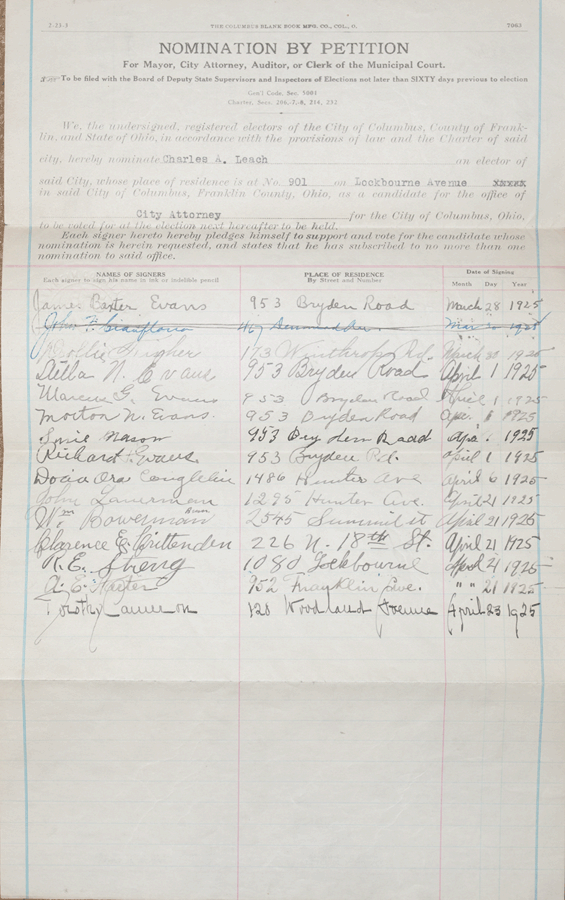 2-23-3 THE COLUMBUS BLANK BOOK MFG. CO., COL., O. 7063
NOMINATION BY PETITION
For Mayor, City Attorney, Auditor, or Clerk of the Municipal Court.
To be filed with the Board of Deputy State Supervisors and Inspectors of Elections not later than SIXTY days previous to election
Gen'l Code, Sec. 5001
Charter, Secs. 206,-7,-8, 232
We, the undersigned, registered electors of the City of Columbus, County of Frank-
lin, and State of Ohio, in accordance with the provisions of law and the Charter of said
city, hereby nominate Charles A. Leach an elector of
said City, whose place of residence is at No. 901 on Lockbourne Avenue XXXXX
in said City of Columbus, Franklin County, Ohio, as a candidate for the office of
City Attorney for the City of Columbus, Ohio,
to be voted for at the election next hereafter to be held.
Each signer hereto hereby pledges himself to support and vote for the candidate whose
nomination is herein requested, and states that he has subscribed to no more than one
nomination to said office.
NAMES OF SIGNERS PLACE OF RESIDENCE Date of Signing
Each signer to sign his name in ink or indelible pencil By Street and Number Month Day Year
James Baxter Evans 953 Bryden Road March 28 1925
John 1925
173 Winthrop Rd. March 30 1925
Della N. Evans 953 Bryden Road April 1 1925
Marcus G. Evans 953 Bryden Road April 1 1925
Morton N. Evans. 953 Bryden Road Apr. 1 1925
Mason 953 Bryden Road Apr. 1925
Richard Evans 953 Bryden Rd. April 1 1925
Ora Coughlin 1486 Hunter Ave April 6 1925
John Lauerman 1295 Hunter Ave. April 21 1925
Wm Bowerman 2545 Summit st April 21 1925
Clarence E. Crittenden 226 N. 18th St. April 21 1925
R. E. 1080 Lockbourne April 21 1925
952 Franklin Ave. " " 21 1925
Dorothy Cameron 120 Woodland Avenue April 23 1925